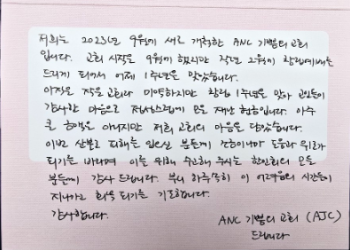 저희는 2023년 9월에 새로 개척한 ANC 기쁨의 교회
입니다. 교회 시작은 9월에 했지만 작년 2월에 창립예배를
드리게 되어서 어제 1주년을 맞았습니다.
아직은 작은 교회라 미약하지만 창립 1주년을 맞아 교인들이
감사한 마음으로 정성스럽게 모은 재난 헌금입니다. 아주
큰 금액은 아니지만 저희 교회의 마음을 담았습니다.
이번 산불로 피해를 입으신 분들께 조금이나마 도움과 위로가
되기를 바라며 이를 위해 수고해 주시는 한인회의 모든
분들께 감사 드립니다. 부디 하루속히 이 어려움의 시간들이
지나가고 회복 되기를 기도합니다.
감사합니다.
ANC 기쁨의 교회 (AJC)
드립니다.